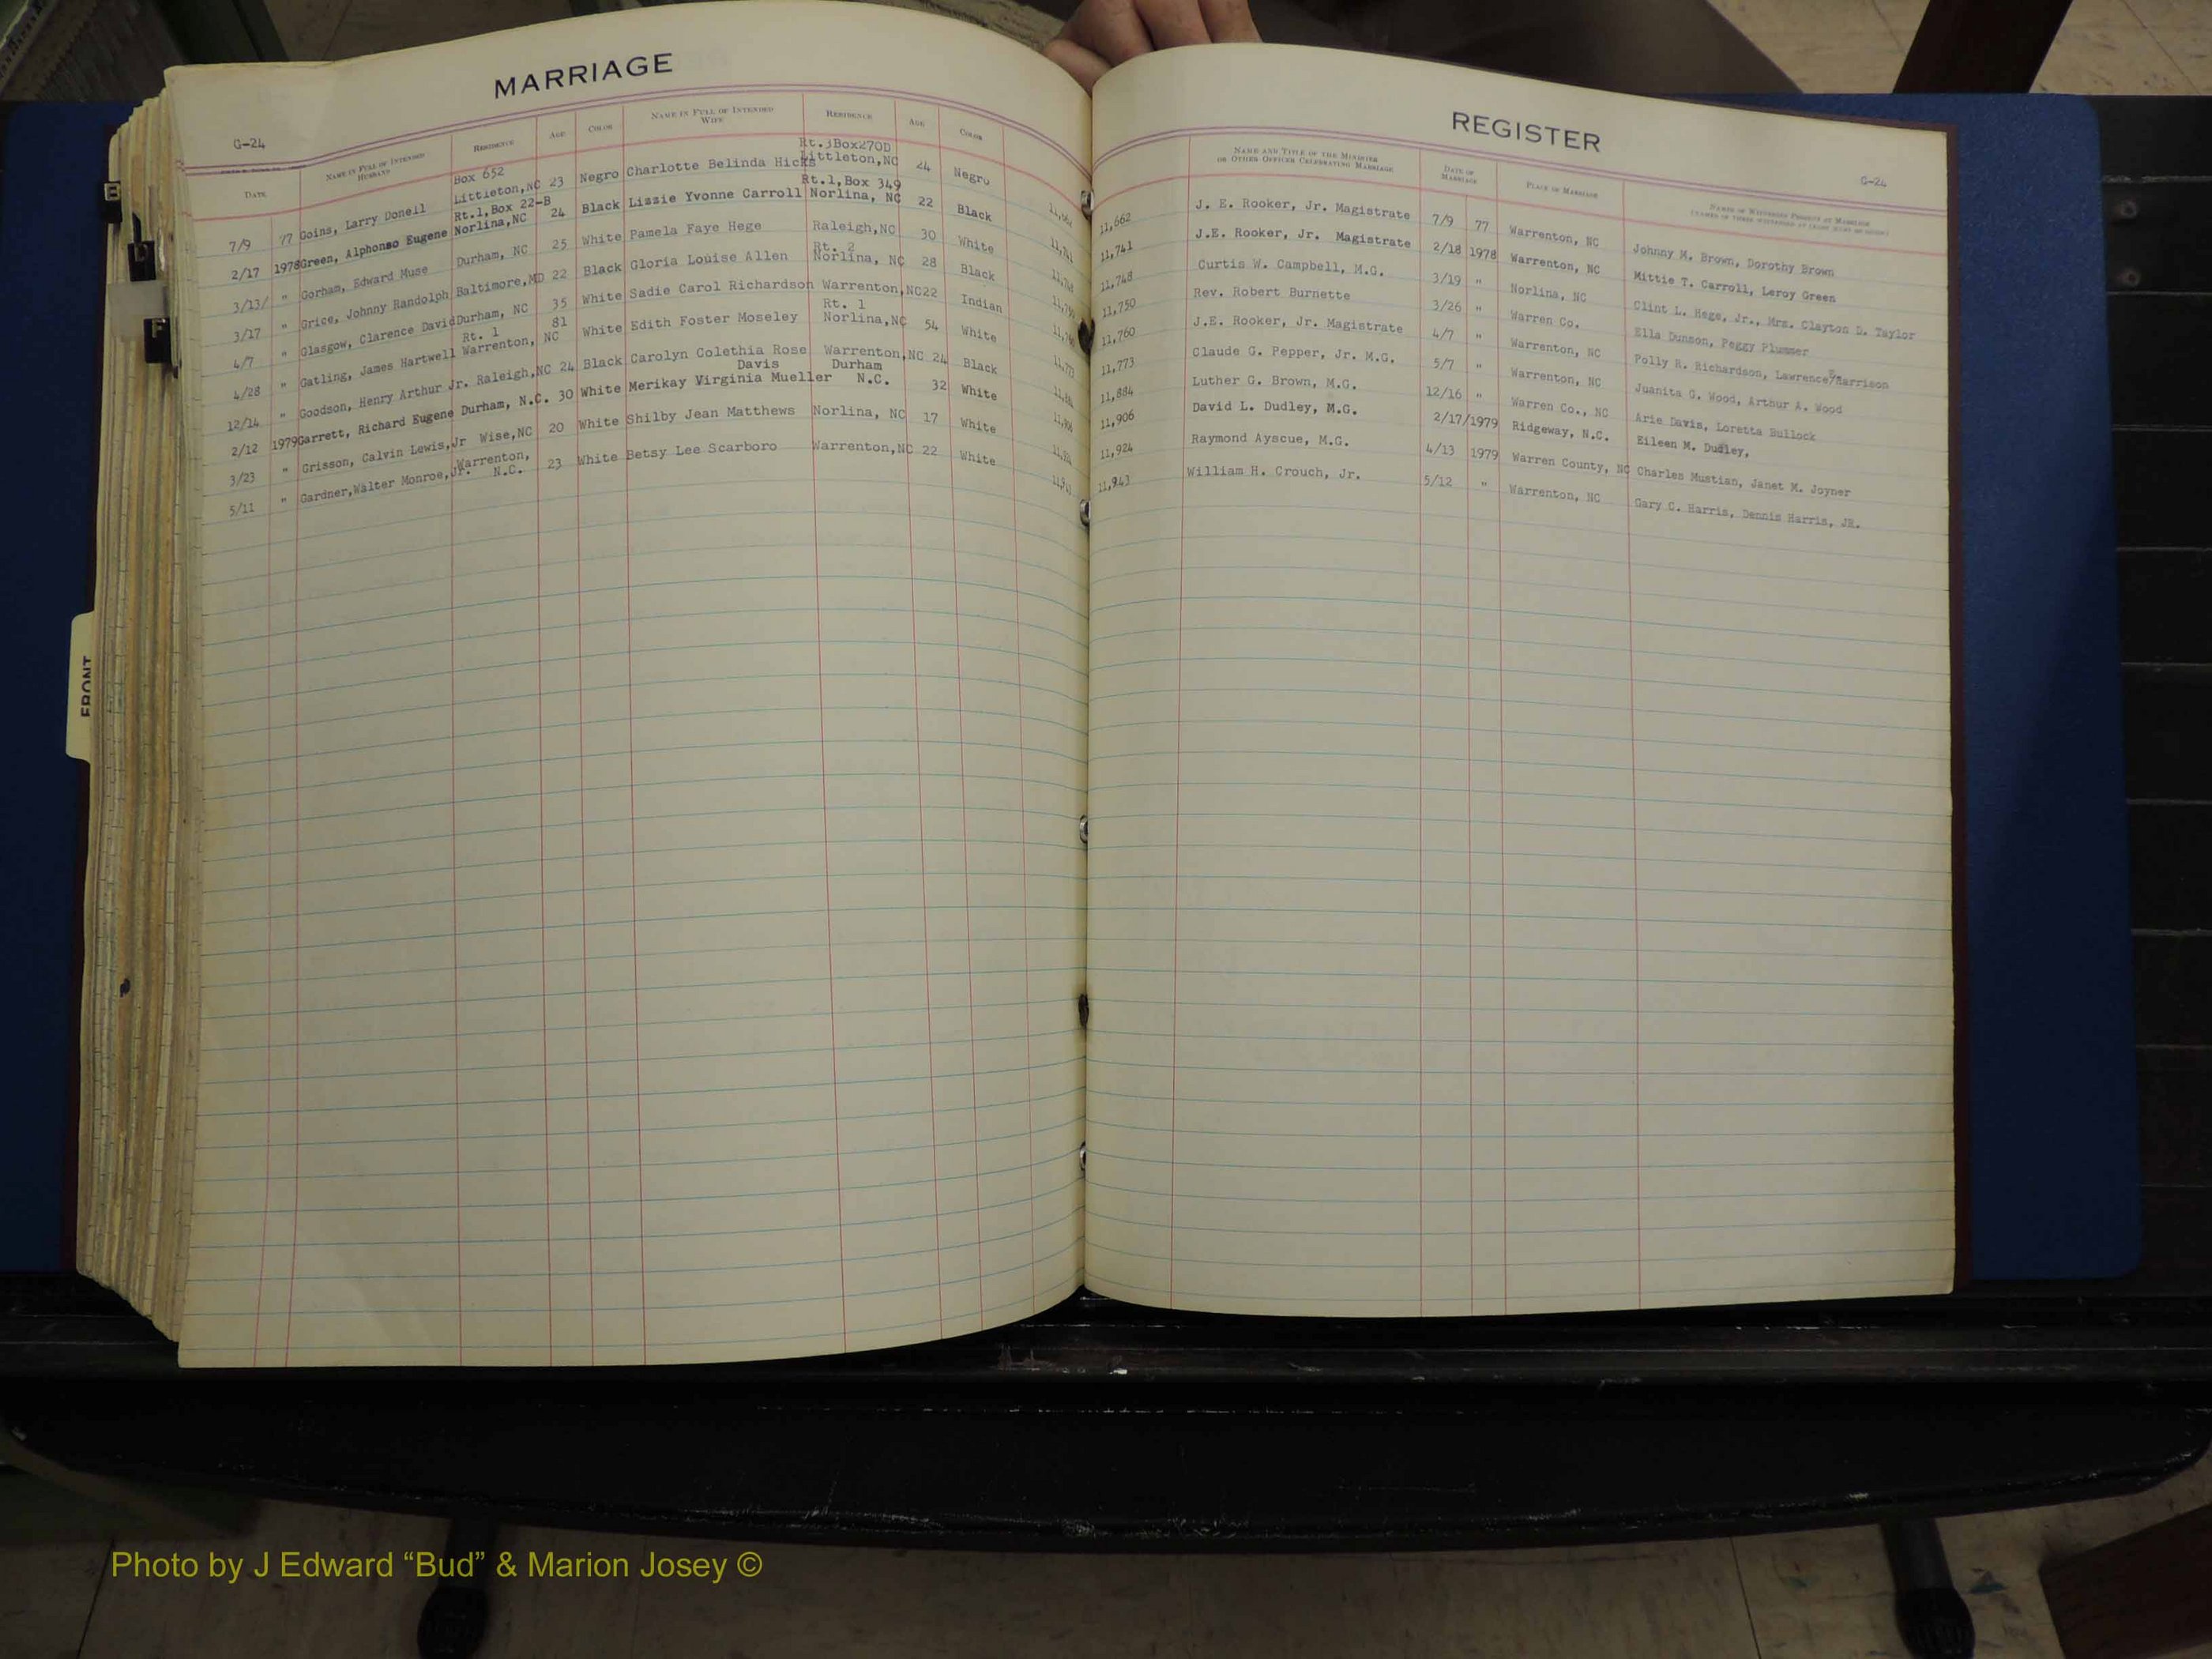 MARRIAGE
G-24
DATE
NAME IN FULL OF INTENDED HUSBAND
RESIDENCE
AGE
COLOR
NAME IN FULL OF INTENDED WIFE
RESIDENCE
AGE
COLOR
7/9 77 Goins, Larry Donell Box 652 Littleton,NC 23 Negro Charlotte Belinda Hicks Rt.3Box270D Littleton,NC 24 Negro
2/17 1978 Green, Alphonso Eugene Rt.1,Box 22-B Norlina,NC 24 Black Lizzie Yvonne Carroll Rt.1,Box 349 Norlina, NC 22 Black
3/13/ " Gorham, Edward Muse Durham, NC 25 White Pamela Faye Hege Raleigh,NC 30 White
3/17 " Grice, Johnny Randolph Baltimore,MD 22 Black Gloria Louise Allen Rt. 2 Norlina, NC 28 Black
4/7 " Glasgow, Clarence David Durham, NC 35 White Sadie Carol Richardson Warrenton,NC 22 Indian
4/28 " Gatling, James Hartwell Rt. 1 Warrenton, NC 81 White Edith Foster Moseley Rt. 1 Norlina,NC 54 White
12/14 " Goodson, Henry Arthur Jr. Raleigh,NC 24 Black Carolyn Colethia Rose Davis Warrenton,NC 24 Black
2/12 1979 Garrett, Richard Eugene Durham, N.C. 30 White Merikay Virginia Mueller Durham N.C. 32 White
3/23 " Grisson, Calvin Lewis,Jr Wise,NC 20 White Shilby Jean Matthews Norlina, NC 17 White
5/11 " Gardner,Walter Monroe,Jr. Warrenton, N.C. 23 White Betsy Lee Scarboro Warrenton,NC 22 White
REGISTER
G-24
NAME AND TITLE OF THE MINISTER OR OTHER OFFICER CELEBRATING MARRIAGE
DATE OF MARRIAGE
PLACE OF MARRIAGE
NAMES OF WITNESSES PRESENT AT MARRIAGE
11,662 J. E. Rooker, Jr. Magistrate 7/9 77 Warrenton, NC Johnny M. Brown, Dorothy Brown
11,741 J.E. Rooker, Jr. Magistrate 2/18 1978 Warrenton, NC Mittie T. Carroll, Leroy Green
11,748 Curtis W. Campbell, M.G. 3/19 " Norlina, NC Clint L. Hege, Jr., Mrs. Clayton D. Taylor
11,750 Rev. Robert Burnette 3/26 " Warren Co. Ella Dunson, Peggy Plummer
11,760 J.E. Rooker, Jr. Magistrate 4/7 " Warrenton, NC Polly R. Richardson, Lawrence Harrison
11,773 Claude G. Pepper, Jr. M.G. 5/7 " Warrenton, NC Juanita G. Wood, Arthur A. Wood
11,884 Luther G. Brown, M.G. 12/16 " Warren Co., NC Arie Davis, Loretta Bullock
11,906 David L. Dudley, M.G. 2/17/1979 Ridgeway, N.C. Eileen M. Dudley,
11,924 Raymond Ayscue, M.G. 4/13 1979 Warren County, NC Charles Mustian, Janet M. Joyner
11,943 William H. Crouch, Jr. 5/12 " Warrenton, NC Gary C. Harris, Dennis Harris, JR.
E
D
F
FRONT
Photo by J Edward “Bud” & Marion Josey ©